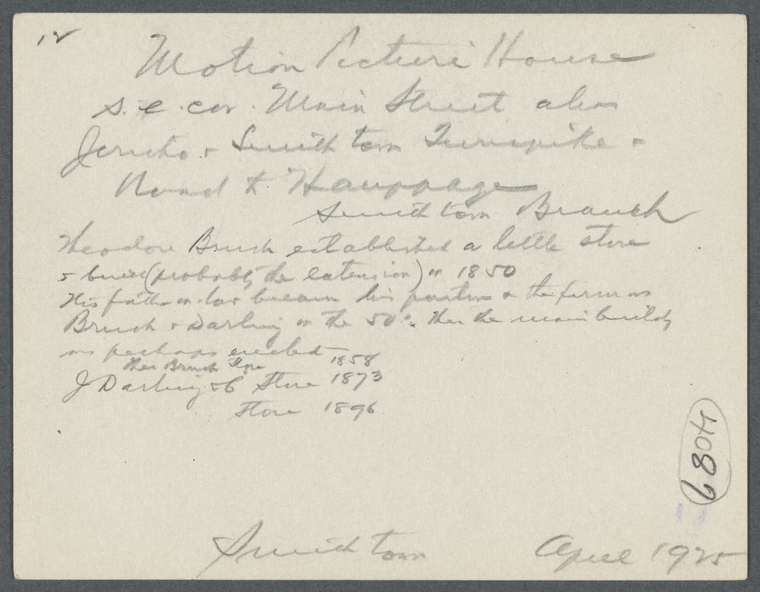 Motion Picture House
s.e. cor. Main Street also
Jericho & Smithtown Turnpike &
Road to Hauppage
Smithtown Branch
Theodore Brush established a little store
& built (probably the extension) in 1850
His father in law became his partner & the firm was
Brush & Darling in the 50s. Then the main buildg
was perhaps erected
Theo Brush Store 1858
J Darling & Co Store 1873
Store 1896
4089
Smithtown April 1925